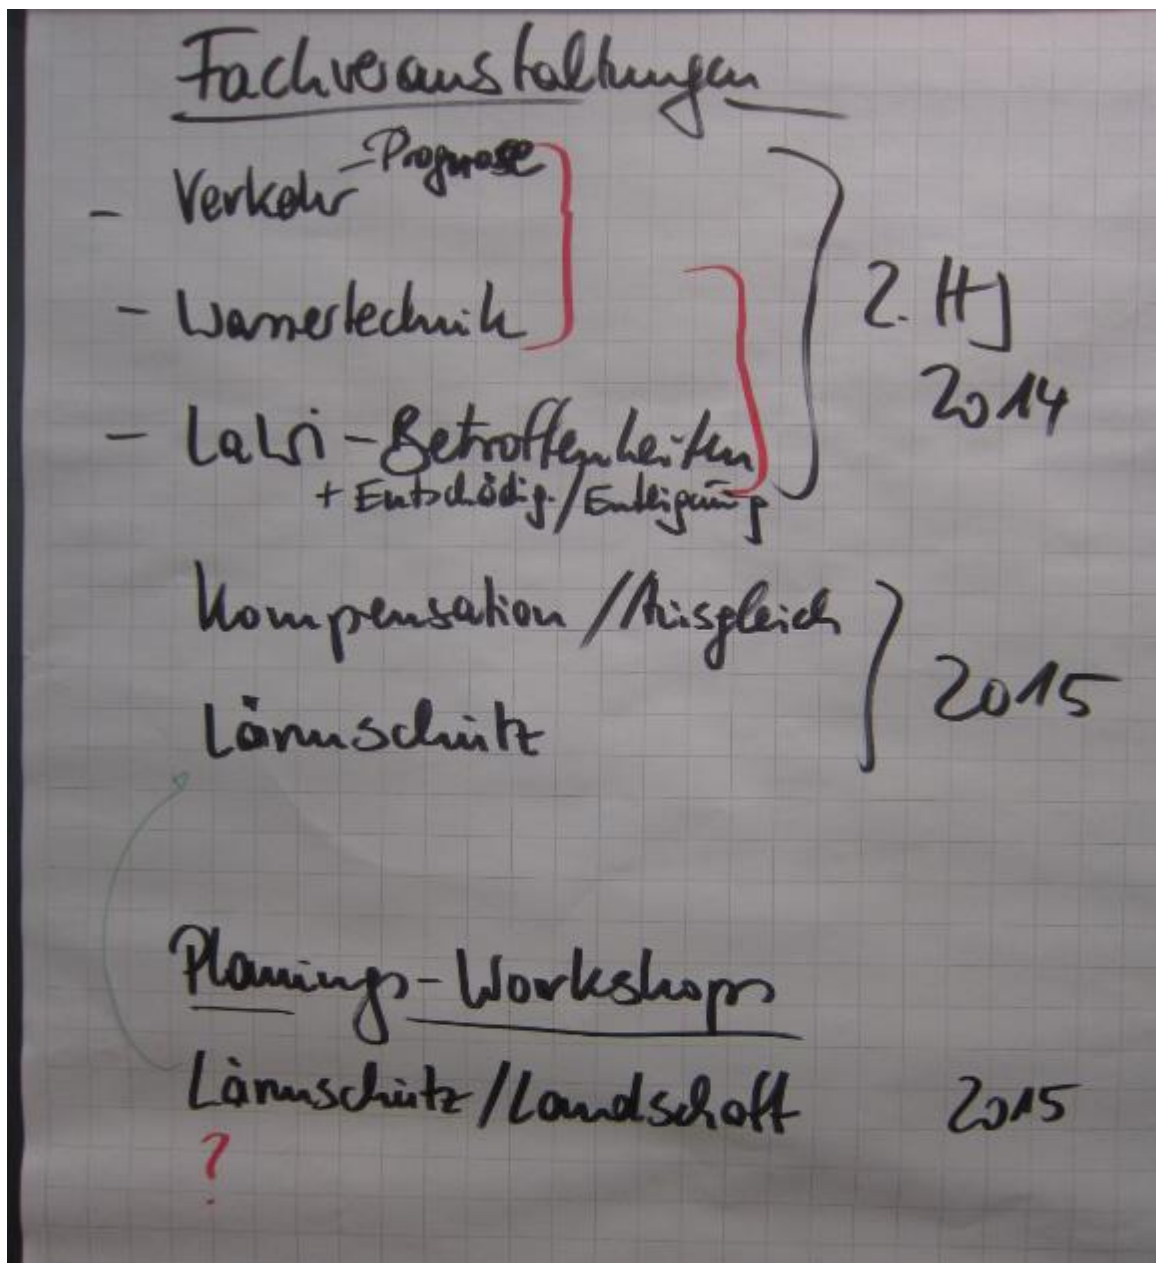 Fachveranstaltungen
- Verkehr - Prognose
- Wassertechnik
2. HJ
2014
- LaWi - Betroffenheiten
+ Entschädig. / Enteignung
Kompensation / Ausgleich
2015
Lärmschutz
Planungs-Workshops
Lärmschutz / Landschaft 2015
?